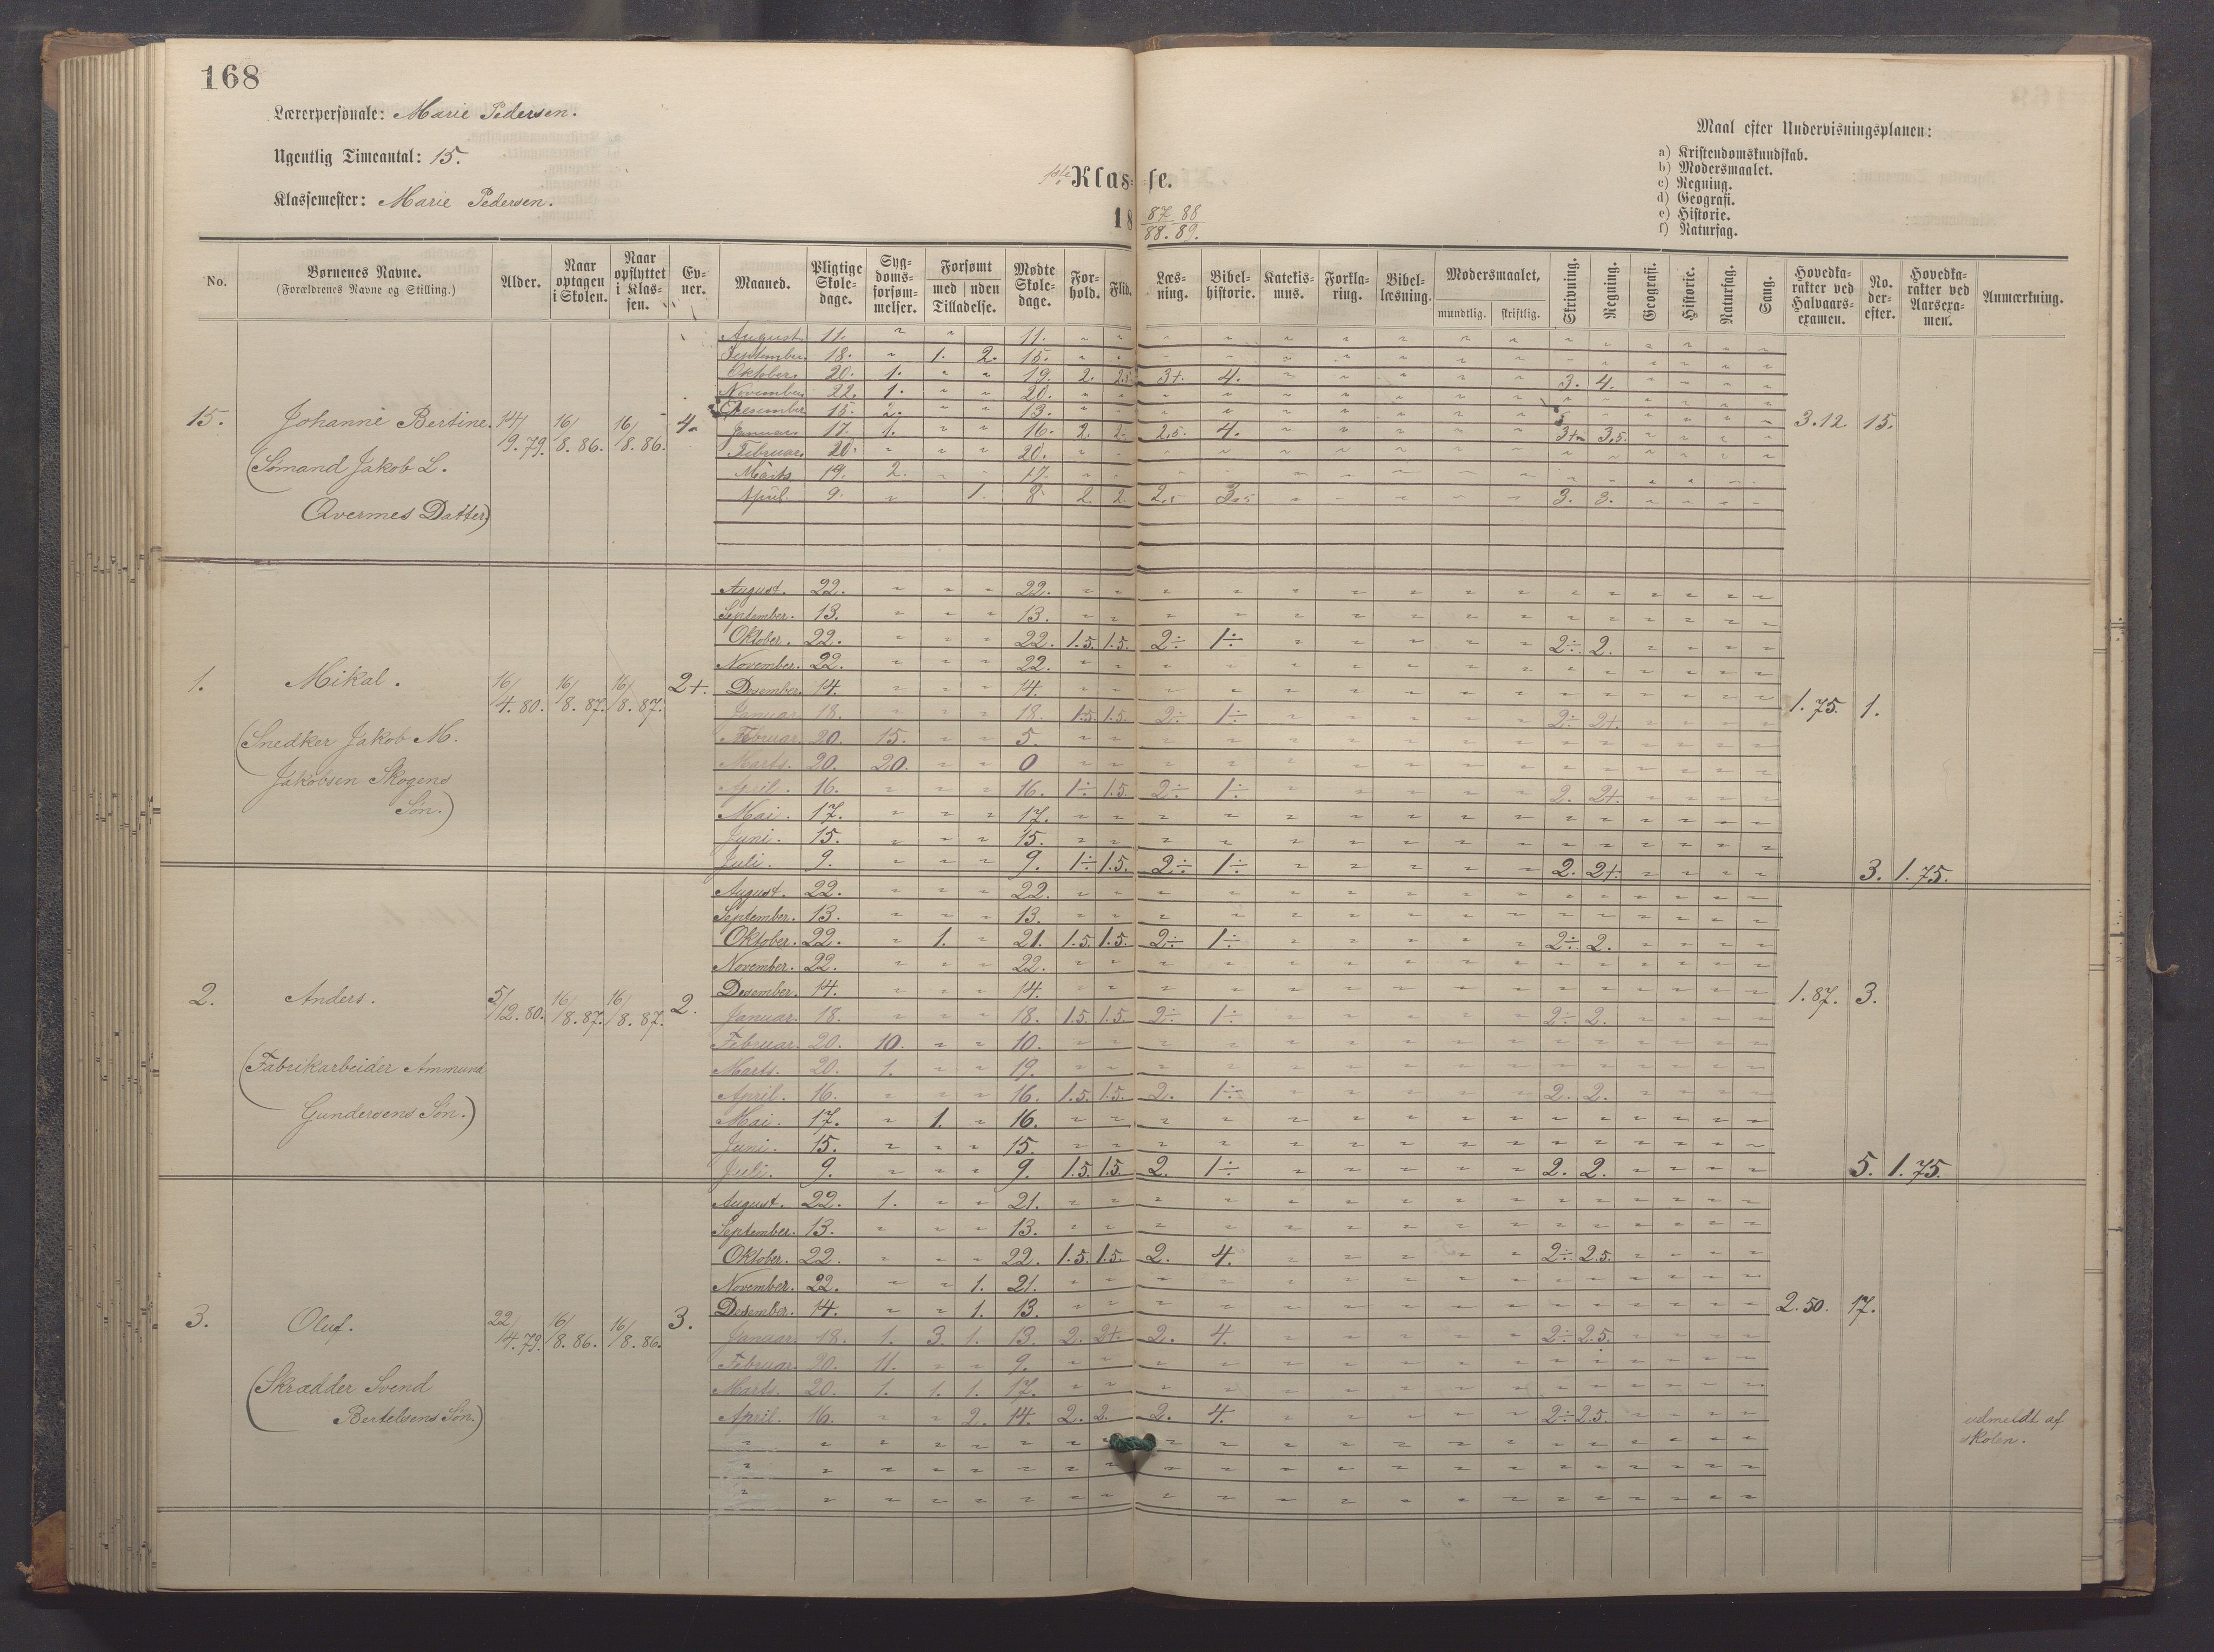 168
Lærerpersonale: Marie Pedersen.
Ugentlig Timeantal: 15.
Klassemester: Marie Pedersen.
1ste Klas-se.
18 87/88. 88/89.
Maal efter Undervisningsplanen:
a) Kristendomskundskab.
b) Modersmaalet.
c) Regning.
d) Geografi.
e) Historie.
f) Naturfag.
No. | Børnenes Navne. (Forældrenes Navne og Stilling.) | Alder. | Naar optagen i Skolen. | Naar opflyttet i Klassen. | Evner. | Maaned. | Pligtige Skoledage. | Sygdomsforsømmelser. | Forsømt med | uden Tilladelse. | Mødte Skoledage. | Forhold. | Flid. | Læsning. | Bibelhistorie. | Katekismus. | Forklaring. | Bibellæsning. | Modersmaalet, mundtlig. | skriftlig. | Skrivning. | Regning. | Geografi. | Historie. | Naturfag. | Sang. | Hovedkarakter ved Halvaarsexamen. | No. derefter. | Hovedkarakter ved Aarsexamen. | Anmærkning.
15. Johanne Bertine. 14/9. 79. 16/8. 86. 16/8. 86. 4.
(Sømand Jakob L.
Qvermes Datter)
August. 11. " " 11. " "
September. 18. " 1. 2. 15. " "
Oktober. 20. 1. " " 19. 2. 2.5 3+. 4. " " " " " 3. 4.
November. 22. 1. " " 20. " "
Desember 15. 2. " " 13. " "
Januar. 17. 1. " " 16. 2. 2. 2.5. 4. " " " " " 3+ 3.5.
3.12. 15.
Februar. 20. " " " 20. " "
Marts 19. 2. " " 17. " "
April. 9. " 1. 8 2. 2. 2.5 3.5 " " " " " 3. 3.
1. Mikal. 16/4. 80. 16/8. 87. 16/8. 87. 2+.
(Snedker Jakob M.
Jakobsen Skogens
Søn.)
August. 22. " " " 22. " "
September. 13. " " " 13. " "
Oktober. 22. " " " 22. 1.5. 1.5. 2÷ 1÷ " " " " " 2÷. 2.
November. 22. " " " 22. " "
Desember. 14. " " " 14. " "
Januar. 18. " " " 18. 1.5. 1.5. 2÷ 1÷ " " " " " 2÷ 2+.
1.75. 1.
Februar. 20. 15. " " 5. " "
Marts. 20. 20. " " 0 " "
April. 16. " " " 16. 1÷ 1.5. 2÷ 1÷ " " " " " 2. 2+.
Mai. 17. " " " 17. " "
Juni. 15. " " " 15. " "
Juli. 9. " " " 9. 1÷ 1.5. 2÷ 1÷ " " " " " 2. 2+. 3. 1.75.
2. Anders. 5/12. 80. 16/8. 87. 16/8. 87. 2.
(Fabrikarbeider Ammund
Gundersens Søn.)
August. 22. " " " 22. " "
September. 13. " " " 13. " "
Oktober. 22. " 1. " 21. 1.5. 1.5. 2÷ 1÷ " " " " " 2÷. 2.
November. 22. " " " 22. " "
Desember. 14. " " " 14. " "
1.87. 3.
Januar. 18. " " " 18. 1.5. 1.5. 2÷ 1÷ " " " " " 2÷ 2.
Februar. 20. 10. " " 10. " "
Marts. 20. 1. " " 19. " "
April. 16. " " " 16. 1.5. 1.5. 2. 1÷ " " " " " 2. 2.
Mai. 17. " 1. " 16. " "
Juni. 15. " " " 15. " "
Juli. 9. " " " 9. 1.5. 1.5. 2. 1÷. " " " " " 2. 2. 5. 1.75.
3. Oluf. 22/4. 79. 16/8. 86. 16/8. 86. 3.
(Skrædder Svend
Bertelsens Søn.)
August. 22. 1. " " 21. " "
September. 13. " " " 13. " "
Oktober. 22. " " " 22. 1.5. 1.5. 2. 4. " " " " " 2÷. 2.5.
November. 22. " " 1. 21. " "
Desember. 14. " " 1. 13. " "
2.50. 17.
Januar. 18. 1. 3. 1. 13. 2. 2+. 2. 4. " " " " " 2÷ 2.5.
Februar. 20. 11. " " 9. " "
Marts. 20. 1. 1. 1. 17. " "
April. 16. " " 2. 14. 2. 2. 2. 4. " " " " " 2÷ 2.5.
udmeldt af
skolen.